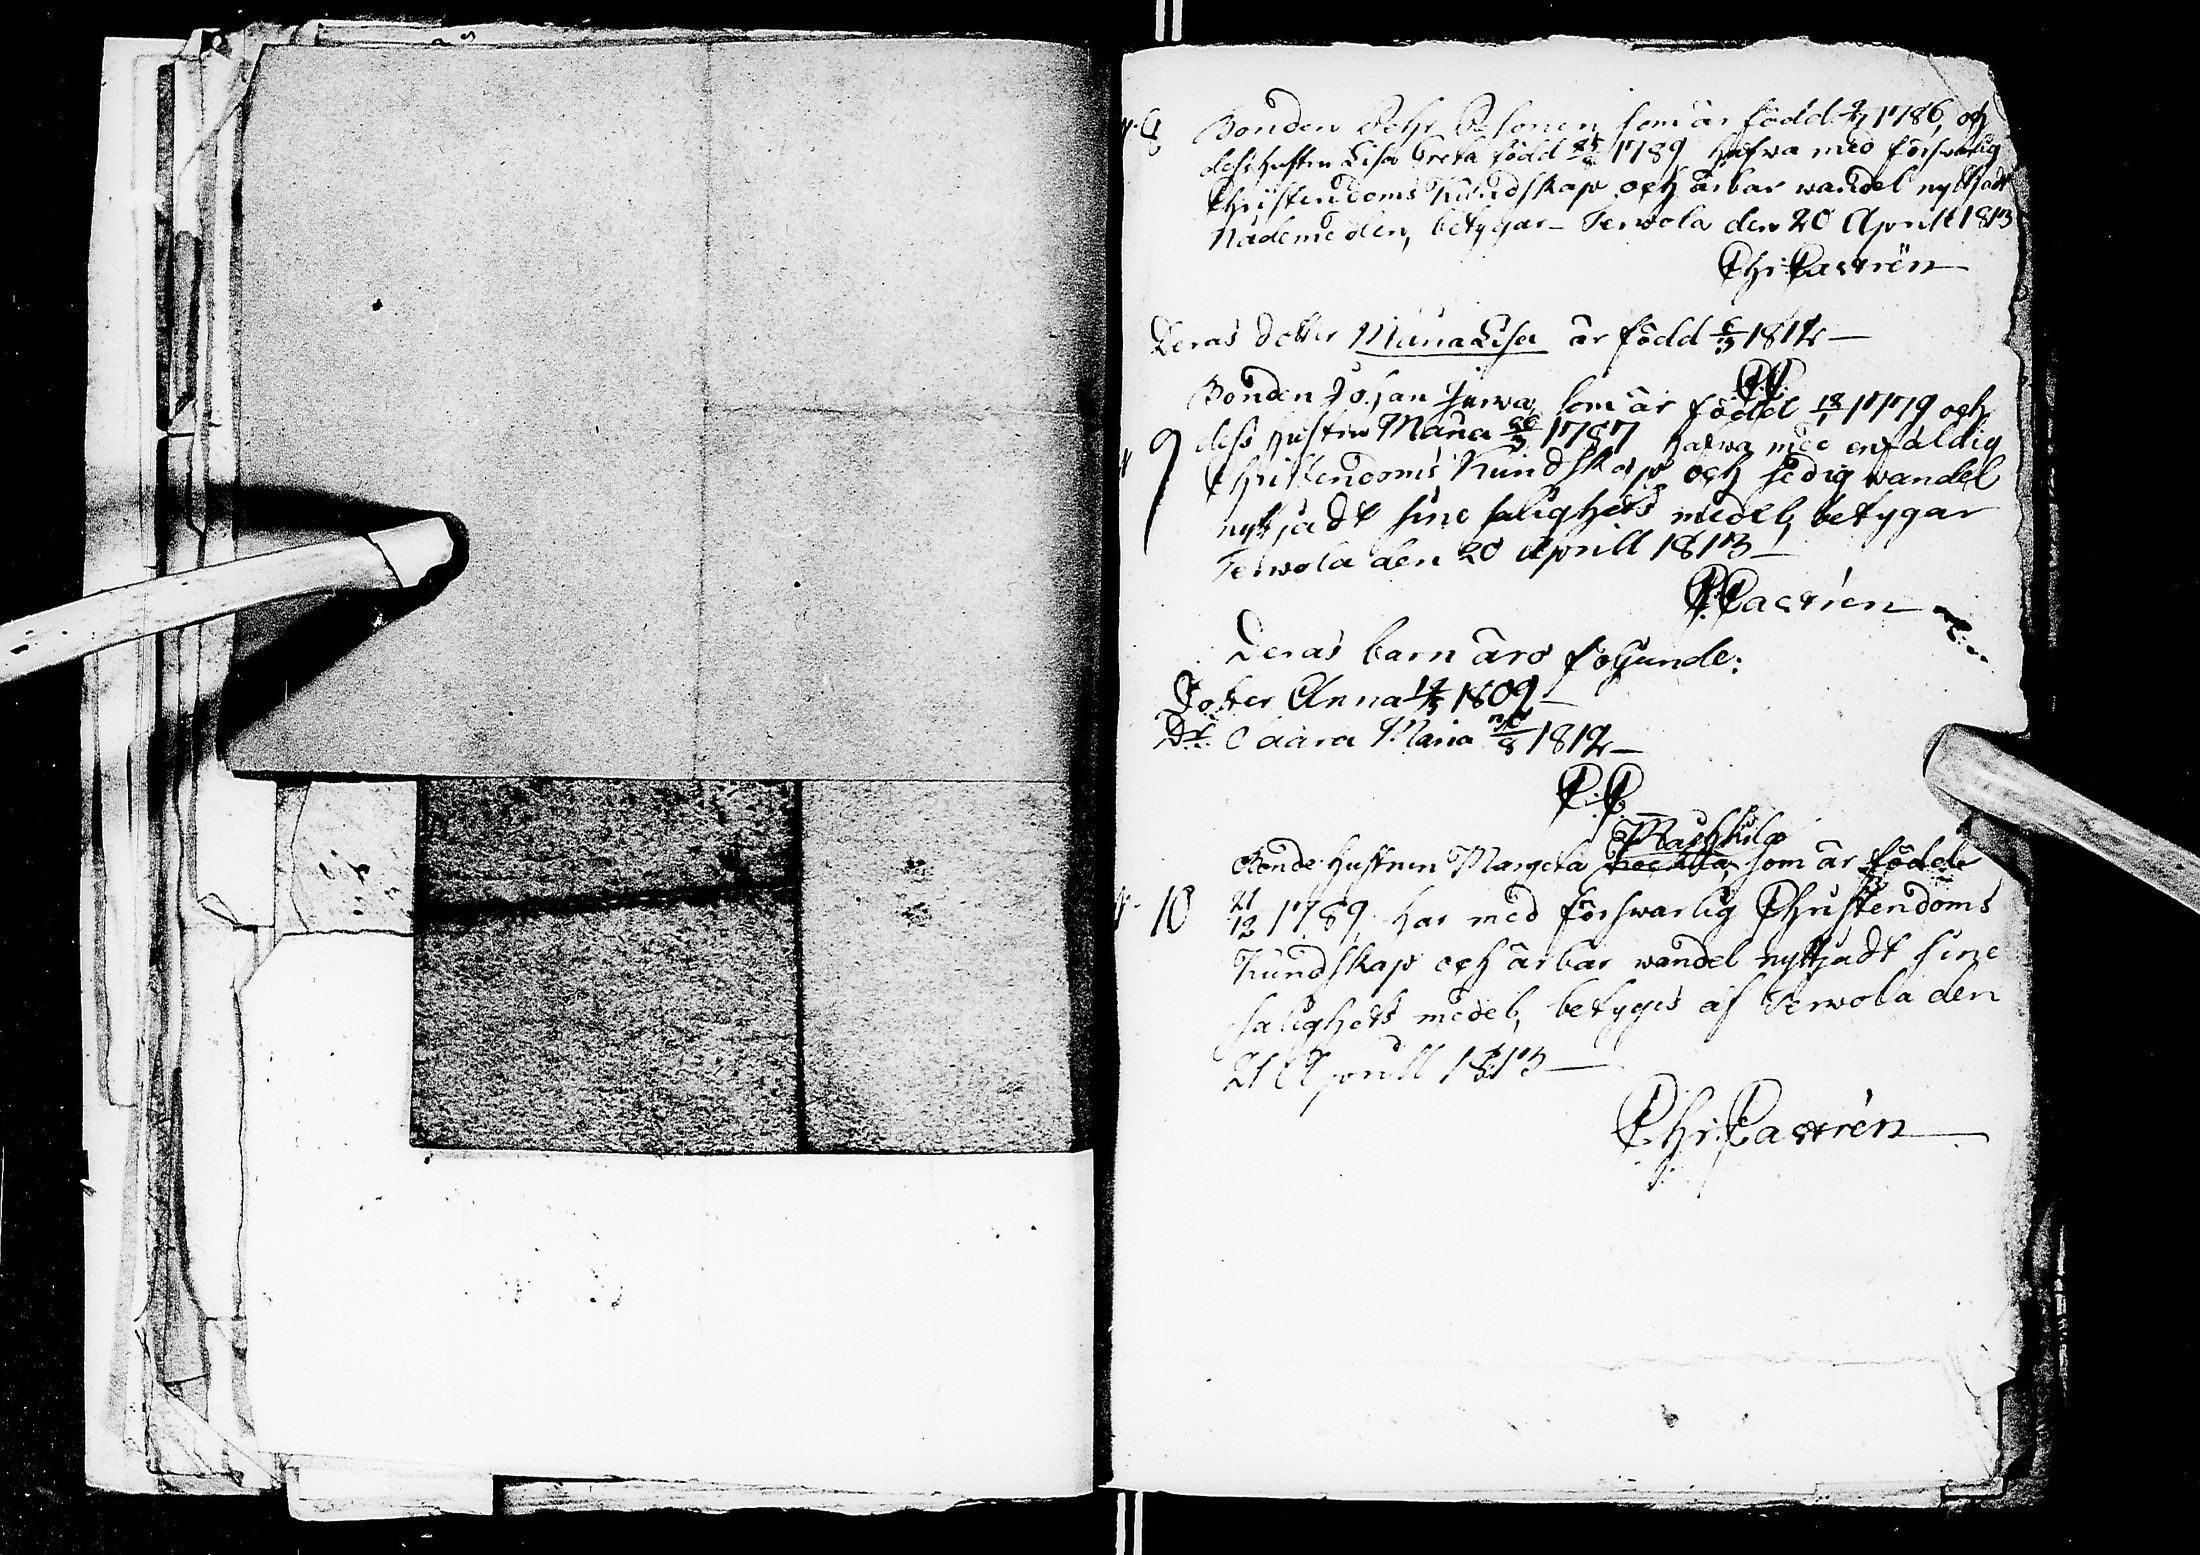 N. 8 Bonden Pehr Pesonen, som är född 2/7 1786, och
dess hustru Lisa Greta född 25/8 1789, hafwa med förswarlig
Christendoms Kundskap och ärbar wandel nyttjadt
Nådemedlen, betygar Terwola den 20 Aprill 1813
Chr: Castrén
Deras dotter Maria Lisa är född 1812
C.C.
Bonden Johan Jurwa, som är född 18/1 1779 och
N 9 dess hustru Maria 26/3 1787 hafwa med enfaldig
Christendoms Kundskap och sedig wandel
nyttjadt sine salighets medel, betygar
Terwola den 20 Aprill 1813
C. Castrén
Deras barn äro följande:
Dotter Anna 1809
Dr. Caara Maria 30/8 1812
C. C.
Raschkila
Bonde Hustrun Margeta som är född
N. 10 21/12 1789, har med förswarlig Christendoms
Kundskap och ärbar wandel nyttjadt sine
salighets medel, betyges af Terwola den
21 Aprill 1813
Chr: Castrén